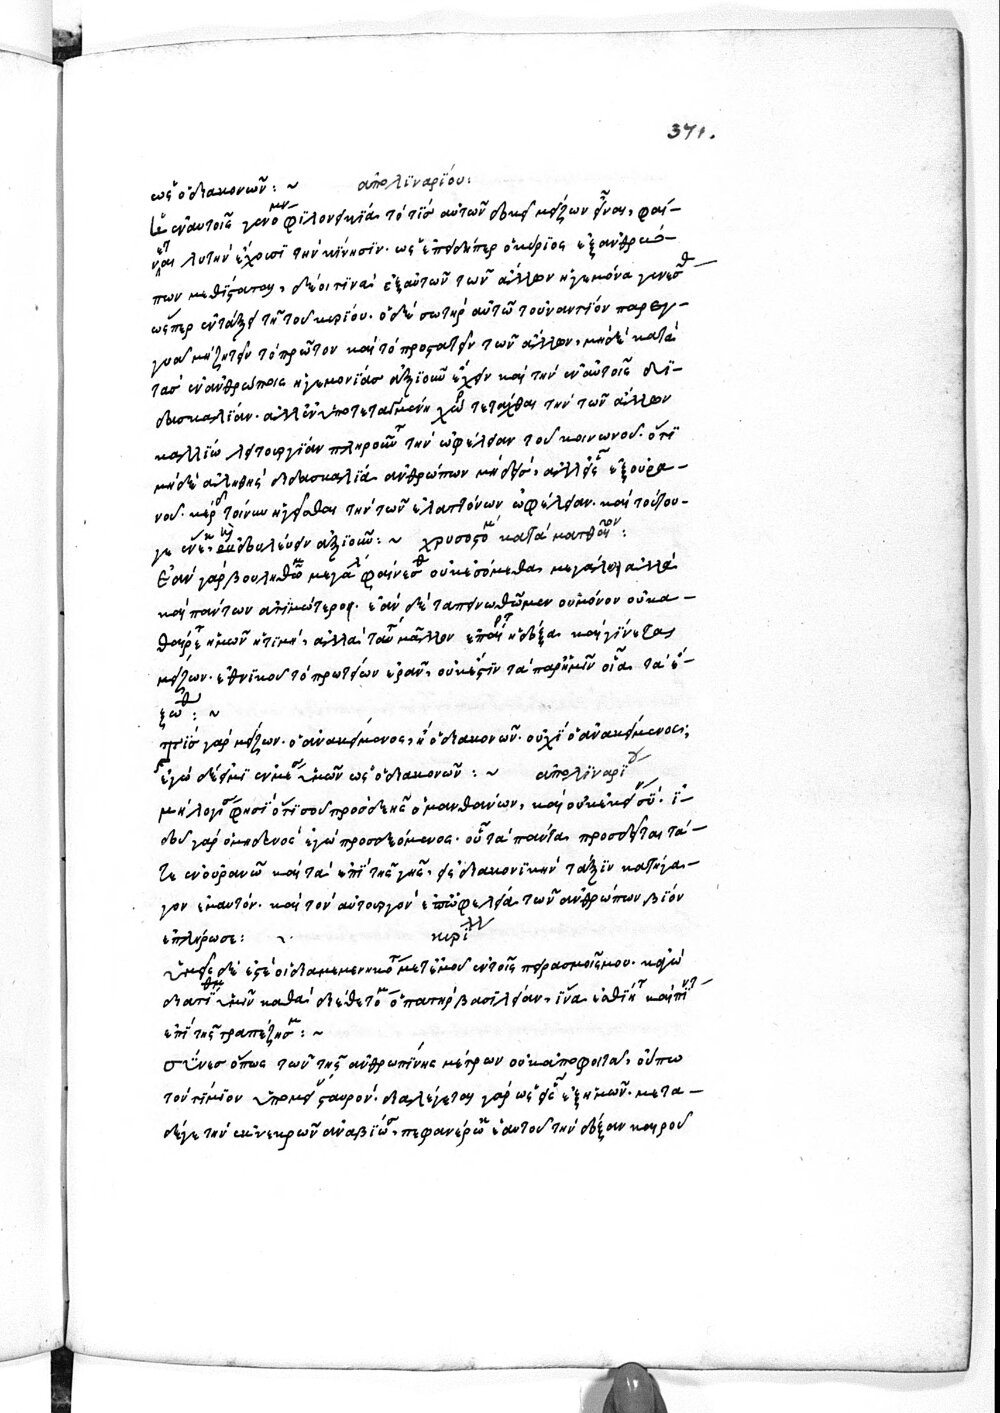 371.
ως ὁ διακονῶν: ~ ἀπολϊναρΐου:
ἐν ἑαυτοῖς γενομένην φιλονεικία τὸ τίσ αὐτῶν δοκεῖ μείζων εἶναι, φαί-
νεται λυτὴν ἔχουσι τὴν κίνησϊν. ὡς ἐπειδήπερ ὁ κύριος ἐξ ἀνθρώ-
πων μεθίσταται, δέοι τινὰ ἐξ αὐτῶν τῶν ἄλλων ἡγεμόνα γενέσθ
ὥσπερ ἐν τάξει τῆ τοῦ κυρίου. ὁ δὲ σωτὴρ αὐτῶ τοὐναντίον παρεγ-
γυᾶ μὴ ζητεῖν τὸ πρῶτον καὶ τὸ προστατεῖν τῶν ἄλλων, μὴ δὲ κατὰ
τὰσ ἐν ἀνθρώποις ἡγεμονίασ ἀξιοῦν ἔχειν καὶ τὴν ἐν αὐτοῖς δι-
δασκαλίαν. ἀλλ' ἐν ὑποτεταγμένη χώρ τετάχθαι τὴν τῶν ἄλλων
καλλίω λειτουργίαν πληροῦντ τὴν ὠφέλειαν τοῦ κοινωνοῦ. ὅτϊ
μὴ δὲ ἀληθὴς διδασκαλία ἀνθρώπων μὴ δεῖσ, ἀλλ' εἰς ἐξ οὐρα-
νοῦ. κερδ τοίνυν ἡγεῖσθαι τὴν τῶν ἐλαττόνων ὠφέλειαν. καὶ τούτου-
γε ἕνεκ δουλεύειν ἀξιοῦν: ~ χρυσοστομ κατὰ ματθαῖον:
Ἐὰν γὰρ βουληθῶμ μεγάλ φαίνεσθ οὐκ ἐσόμεθα μεγάλοι ἀλλὰ
καὶ πάντων ἀτιμώτεροι. ἐὰν δὲ ταπεινωθῶμεν οὐ μόνον οὐ κα-
θαιρεῖτ ἡμῶν ἡ τιμὴ, ἀλλὰ τότ μᾶλλον ἐπαίρτ ἡ δόξα καὶ γίνεται
μείζων. ἐθνικοῦ τὸ πρωτείων ἐρᾶν, οὐκ ἔστϊν τὰ παρ' ἡμῖν οἷα τὰ ἔ-
ξωθ: ~
τίσ γὰρ μείζων. ὁ ἀνακείμενος, ἢ ὁ διακονῶν. οὐχὶ ὁ ἀνακείμενος;
ἐγὼ δέ εἰμι ἐν μέσ ὑμῶν ὡς ὁ διακονῶν: ~ ἀπολϊναρΐου
μὴ λογισ φησὶ ὅτι σοῦ προσδεὴς ὁ μανθάνων, καὶ οὐκ ἐκείν σύ. ἰ-
δοῦ γὰρ ὁ μηδενὸς ἐγὼ προσδεόμενος. οὗ τὰ πάντα προσδεῖται τά-
τε ἐν οὐρανῶ καὶ τὰ ἐπὶ τῆς γῆς, εἰς διακονικὴν τάξϊν κατήγα-
γον ἐμαυτόν. καὶ τὸν αὐτουργὸν ἐπ' ὠφελεία τῶν ἀνθρώπων βίον
ἐπλήρωσε: ~ κυρΐλλ
Ὑμεῖς δέ ἐστε οἱ διαμεμενηκότ μετ' ἐμοῦ ἐν τοῖς πειρασμοῖς μου. κἀγὼ
διατίθημ ὑμῖν καθὼ διέθετό μ ὁ πατήρ βασϊλείαν, ἵνα ἐσθίητ καὶ πίνητ
ἐπὶ τῆς τραπέζης μ: ~
σύνες ὅπως τῶν τῆς ἀνθρωπίνης μέτρων οὐκ ἀποφοιτᾶ, οὔπω
τὸν τίμιον ὑπομείν σταυρόν. διαλέγεται γὰρ ὡς εἷς ἐξ ἡμῶν. μετὰ-
δέ γε τὴν ἐκ νεκρῶν ἀναβίωσ, πεφανέρωκ ἑαυτοῦ τὴν δόξαν καιροῦ